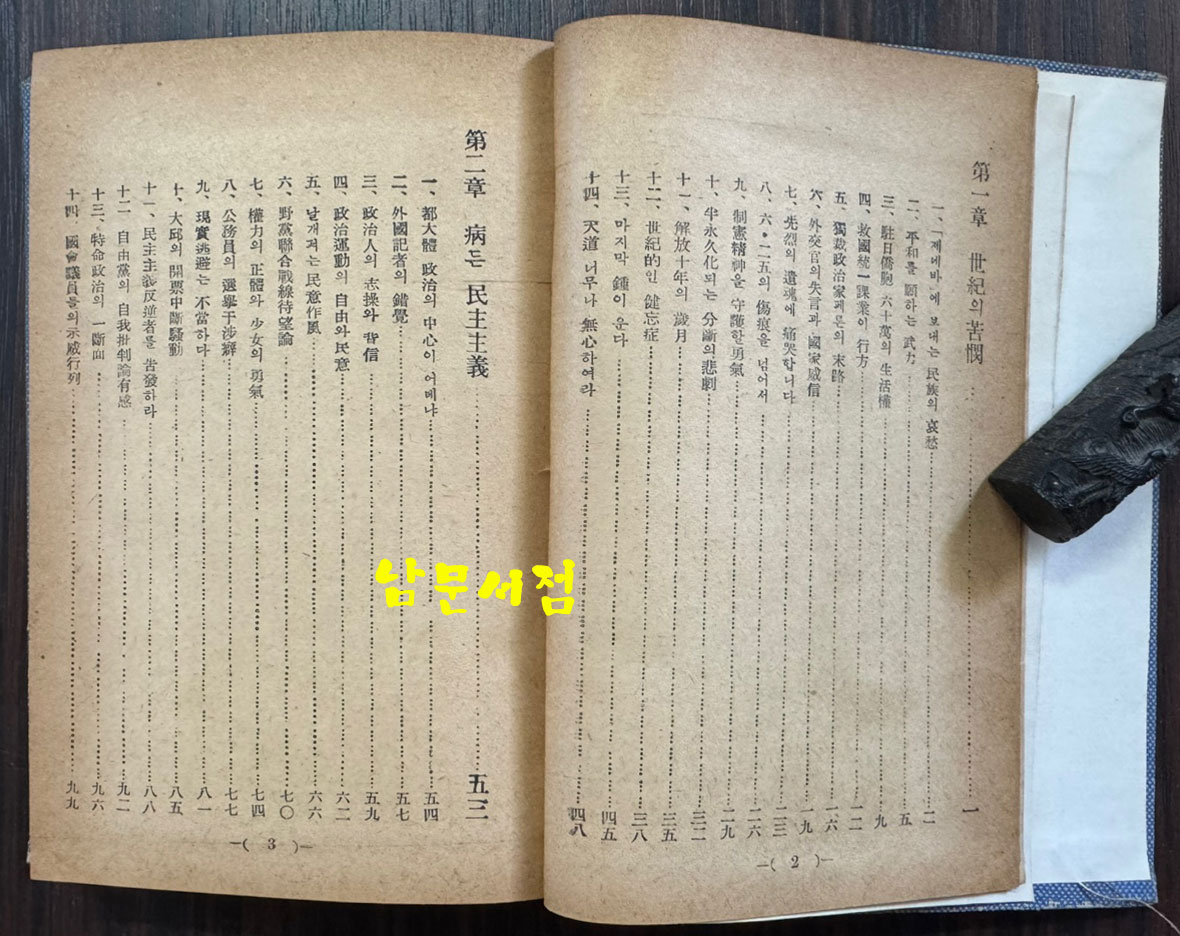 第一章 世紀의 苦憫 一
一、「제네바」에 보내는 民族의 哀愁 二
二、平和를 願하는 武力 五
三、駐日僑胞 六十萬의 生活權 九
四、救國統一課業이 行方 一二
五、獨裁政治家페론의 末路 一六
六、外交官의 失言과 國家威信 一九
七、先烈의 遺魂에 痛哭합니다 二三
八、六・二五의 傷痕을 넘어서 二六
九、制憲精神을 守護할 勇氣 二九
十、半永久化되는 分斷의 悲劇 三二
十一、解放十年의 歲月 三五
十二、世紀的인 健忘症 三八
十三、마지막 鍾이 운다 四五
十四、天道 너무나 無心하여라 四八
—( 2 )—
第二章 病든 民主主義 五三
一、都大體 政治의 中心이 어데냐 五四
二、外國記者의 錯覺 五七
三、政治人의 志操와 背信 五九
四、政治運動의 自由와 民意 六二
五、날개져는 民意作風 六六
六、野黨聯合戰線待望論 七〇
七、權力의 正體와 少女의 勇氣 七四
八、公務員의 選擧干涉癖 七七
九、現實逃避는 不當하다 八一
十、大邱의 開票中斷騷動 八五
十一、民主主義反逆者를 告發하라 八八
十二、自由黨의 自我批判論有感 九二
十三、特命政治의 一斷面 九六
十四、國會議員들의 示威行列 九九
—( 3 )—
남문서점